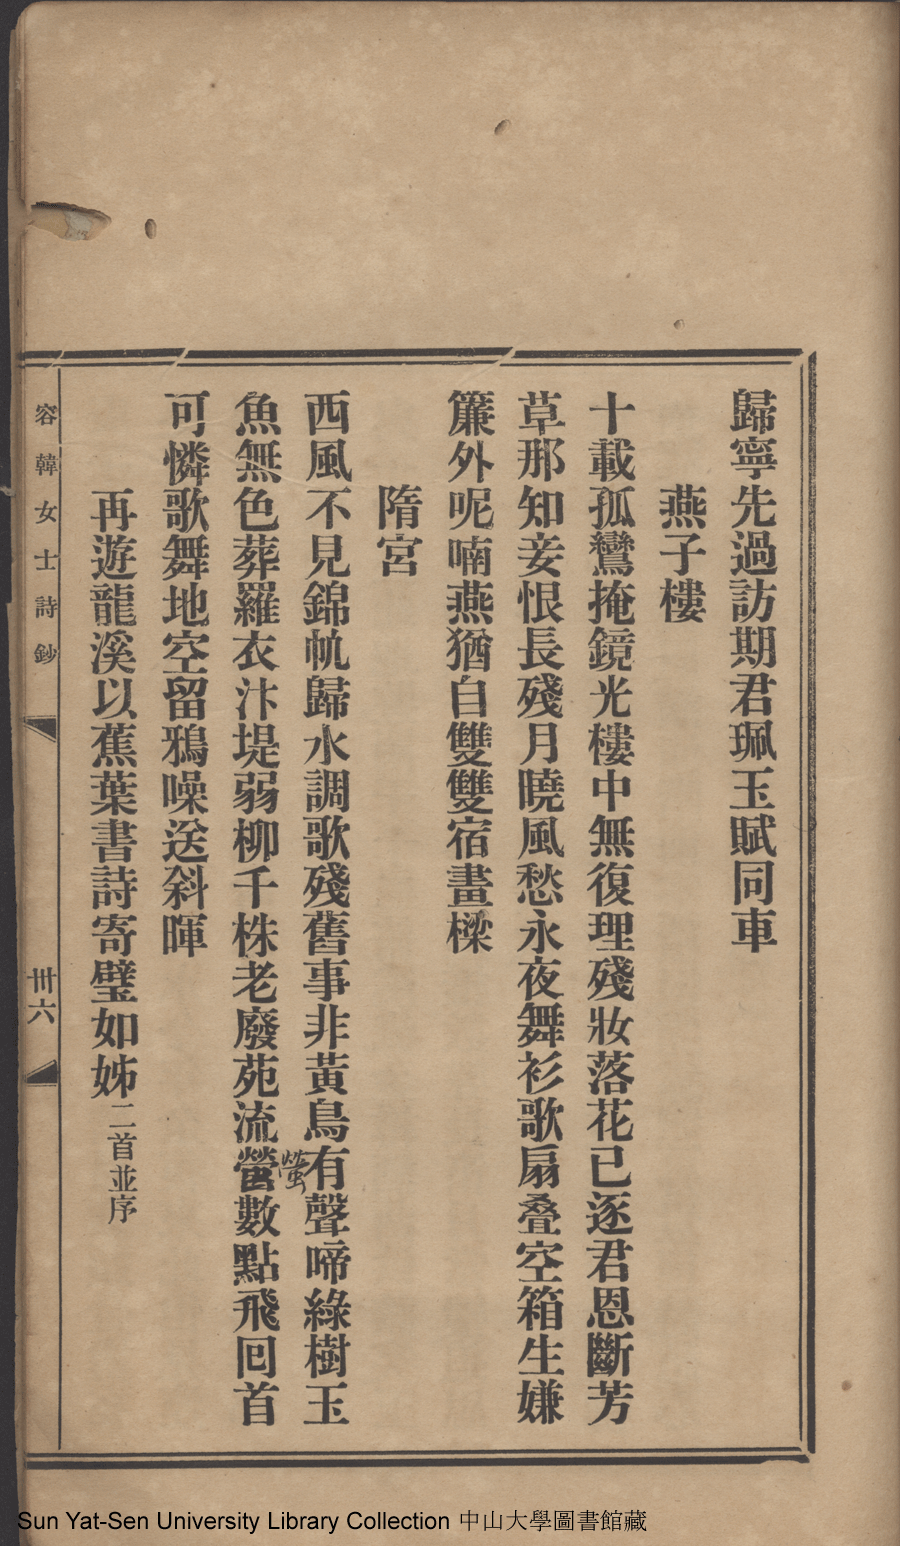 歸寧先過訪期君珮玉賦同車
燕子樓
十載孤鸞掩鏡光樓中無復理殘妝落花已逐君恩斷芳
草那知妾恨長殘月曉風愁永夜舞衫歌扇叠空箱生嫌
簾外呢喃燕猶自雙雙宿畫樑
隋宮
西風不見錦帆歸水調歌殘舊事非黃鳥有聲啼綠樹玉
魚無色葬羅衣汴堤弱柳千株老廢苑流營數點飛回首
螢
可憐歌舞地空留鴉噪送斜暉
再遊龍溪以蕉葉書詩寄璧如姊二首並序
容韓女士詩鈔
卅六
Sun Yat-Sen University Library Collection 中山大學圖書館藏